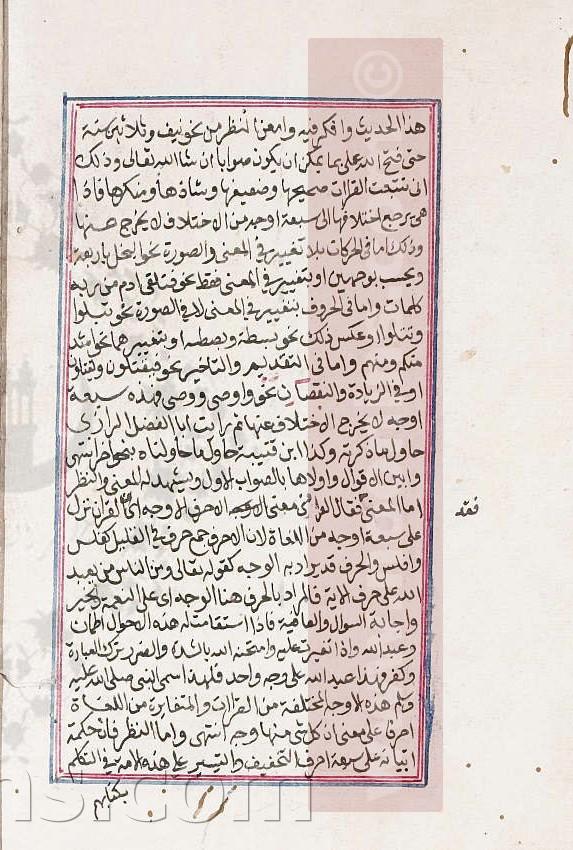 هذا الحديث وافكر فيه وامعن النظر من نحو نيف وثلاثين سنة
حتى فتح الله على بما يمكن ان يكون صوابا ان شا الله تعالى وذلك
انى تتبعت القرات صحيحها وضعيفها وشاذها ومنكرها فاذا
هى يرجع اختلافها الى سبعة اوجه من الاختلاف لا يخرج عنها
وذلك اما فى الحركات بلا تغيير فى المعنى والصورة نحو البخل باربعة
ويحسب بوجهين او بتغيير فى المعنى فقط نحو فتلقى ادم من ربه
كلمات واما فى الحروف بتغيير فى المعنى لا فى الصورة نحو تبلوا
وتتلوا وعكس ذلك نحو بسطة وبصطة او بتغييرهما نحو اشد
منكم ومنهم واما فى التقديم والتاخير نحو فيقتلون ويقتلون
او فى الزيادة والنقصان نحو واوصى ووصى فهذه سبعة
اوجه لا يخرج الاختلاف عنها ثم رايت ابا الفضل الرازى
حاول ما ذكرته وكذا ابن قتيبة حاول ما حاولناه بنحو اخر انتهى
وابين الاقوال واولاها بالصواب الاول ويشهد له المعنى والنظر
اما المعنى فقال معنى الاحرف الاوجه اى القران نزل
على سبعة اوجه من اللغاة لان الاحرف جمع حرف فى القليل كفلس
وافلس والحرف قد يراد به الوجه كقوله تعالى ومن الناس من يعبد
الله على حرف الاية فالمراد بالحرف هنا الوجه اى على النعمة والخير
واجابة السوال والعافية فاذا استقامت له هذه الاحوال اطمان
وعبد الله واذا تغيرت عليه وامتحنه الله بالشدة والضرر ترك العبادة
وكفر فهذا عبد الله على وجه واحد فلهذا اسمى النبى صلى الله عليه
وسلم هذه الاوجه المختلفة من القراات والمتغايرة من اللغاة
احرفا على معنى ان كل شى منها وجه انتهى واما النظر فان حكمة
اتيانه على سبعة احرف التخفيف والتيسير على هذه الامة فى التكلم
بكتابهم
ns.com
©